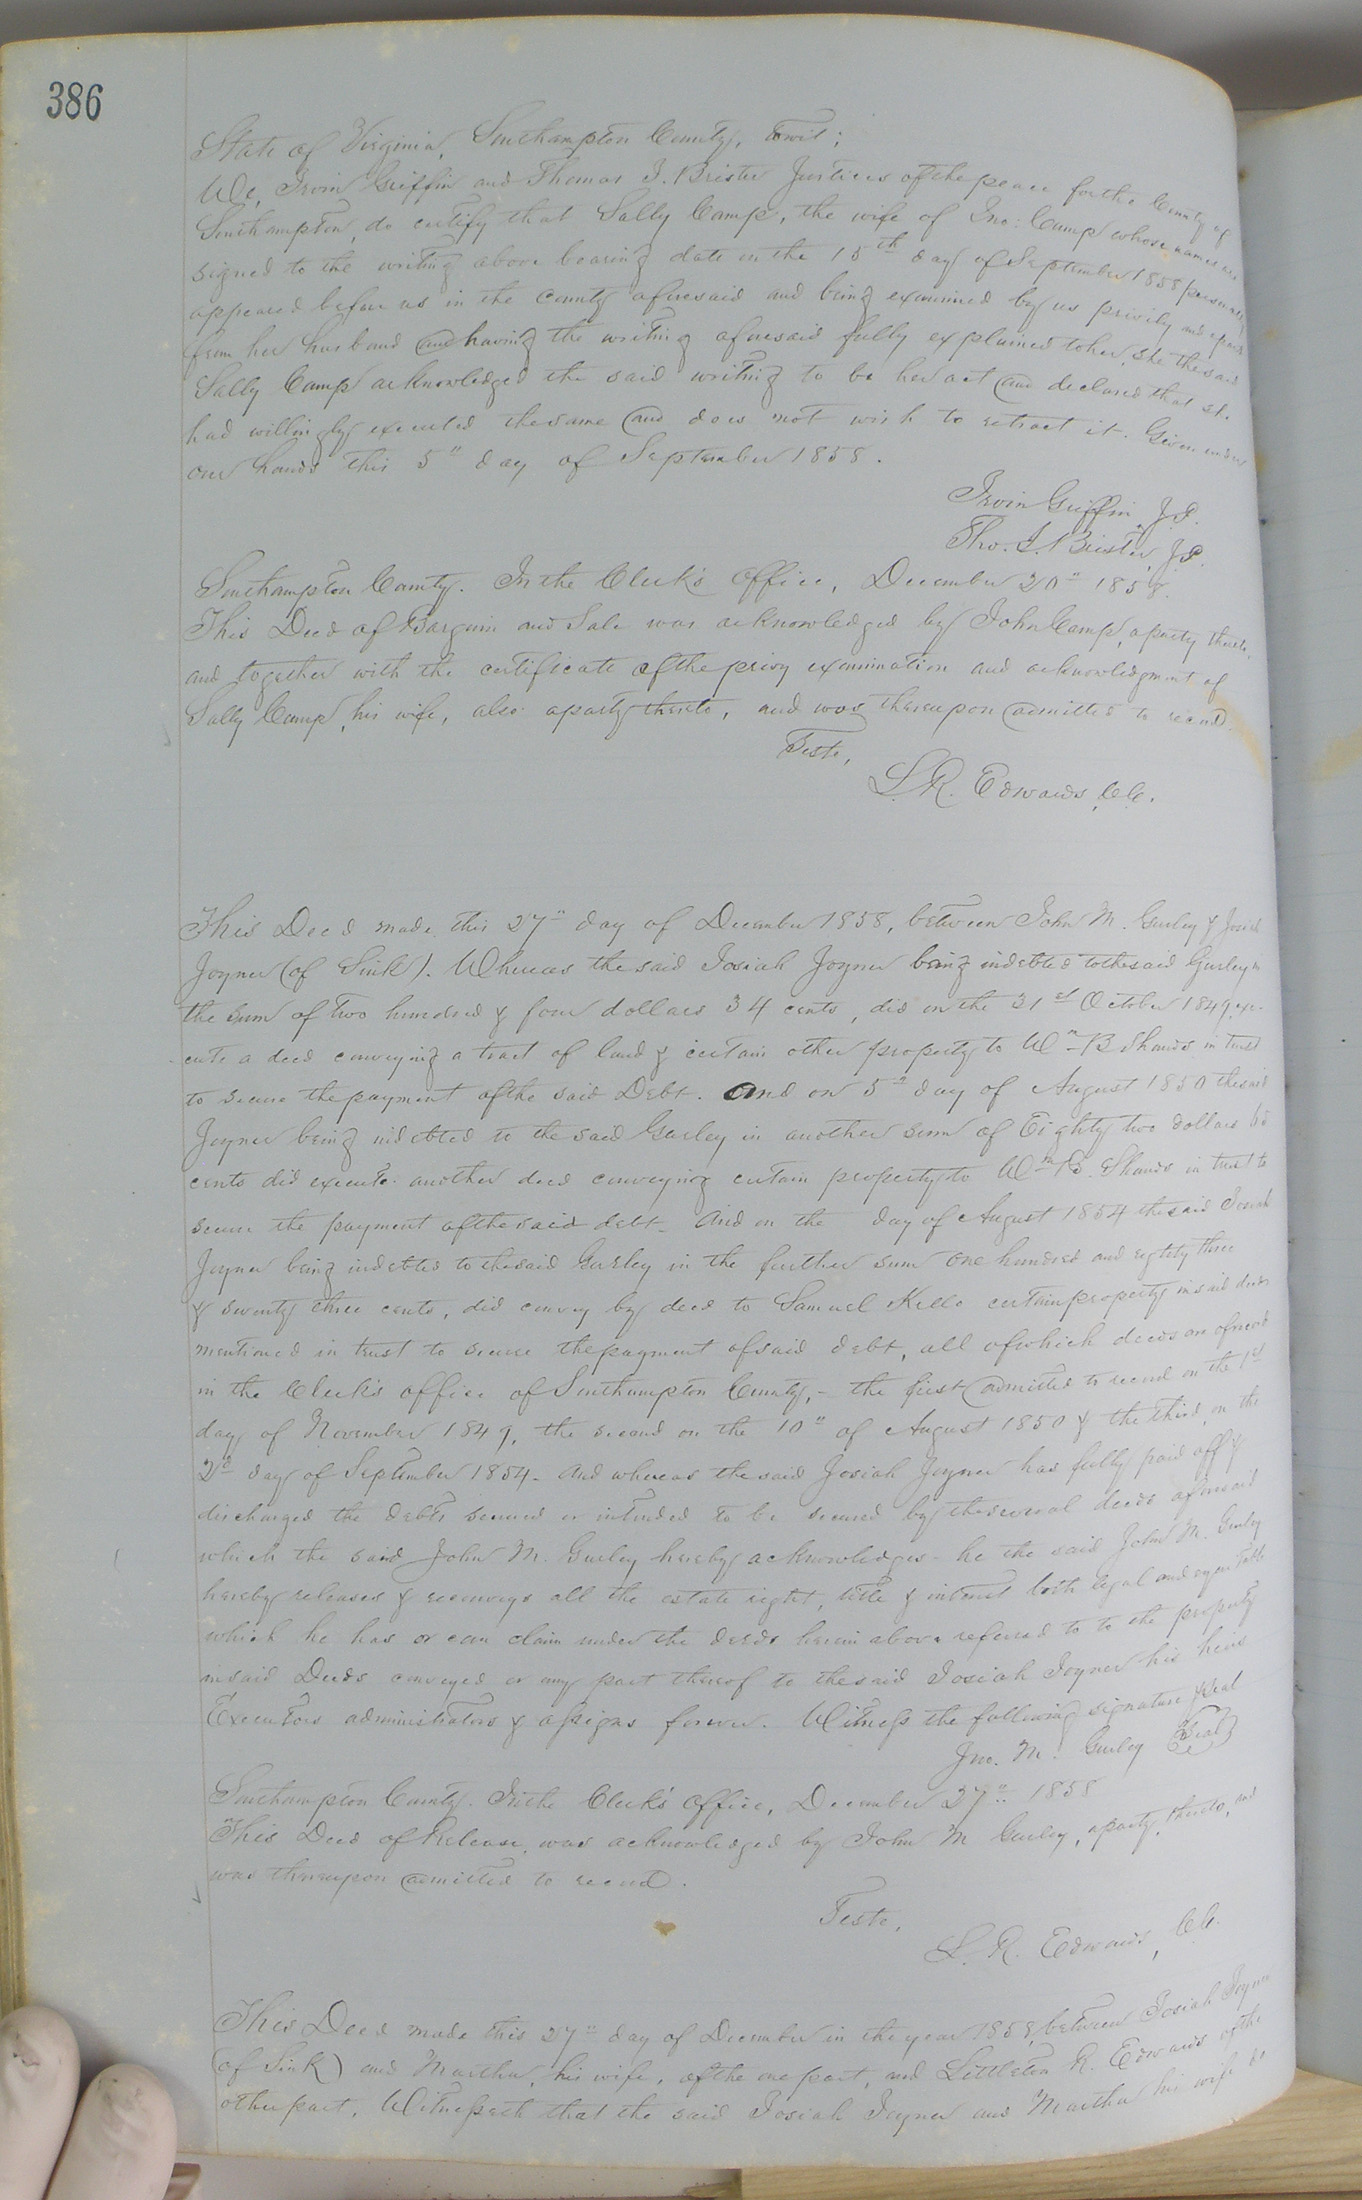 386
State of Virginia, Southampton County, towit;
We, Irvin Griffin and Thomas J. Brister Justices of the peace for the County of
Southampton, do certify that Sally Camp, the wife of Jno: Camp whose names are
signed to the writing above bearing date on the 15th day of September 1858 personally
appeared before us in the county aforesaid and being examined by us privily and apart
from her husband and having the writing aforesaid fully explained to her, she the said
Sally Camp acknowledged the said writing to be her act and declared that she
had willingly executed the same and does not wish to retract it. Given under
our hands this 5" day of September 1858.
Irvin Griffin, J.P.
Tho. J. Brister, J.P.
Southampton County. In the Clerk's Office, December 20" 1858.
This Deed of Bargain and Sale was acknowledged by John Camp, a party thereto,
and together with the certificate of the privy examination and acknowledgment of
Sally Camp, his wife, also a party thereto, and was thereupon admitted to record.
Teste,
L. R. Edwards, C.C.
This Deed made this 27" day of December 1858, between John M. Gurley & Josiah
Joyner (of Sink). Whereas the said Josiah Joyner being indebted to the said Gurley in
the sum of two hundred & four dollars 34 cents, did on the 31st October 1849 exe-
cute a deed conveying a tract of land & certain other property to Wm B Shands in trust
to secure the payment of the said Debt. And on 5th day of August 1850 the said
Joyner being indebted to the said Gurley in another sum of Eighty two dollars
cents did execute another deed conveying certain property to Wm B. Shands in trust to
secure the payment of the said debt. And on the day of August 1854 the said Josiah
Joyner being indebted to the said Gurley in the further sum one hundred and eighty three
& seventy three cents, did convey by deed to Samuel Kello certain property in said deeds
mentioned in trust to secure the payment of said debt, all of which deeds are of record
in the Clerk's office of Southampton County, - the first admitted to record on the 1st
day of November 1849, the second on the 10" of August 1850 & the third on the
2d day of September 1854. And whereas the said Josiah Joyner has fully paid off &
discharged the debts secured or intended to be secured by the several deeds aforesaid
which the said John M. Gurley hereby acknowledges - he the said John M. Gurley
hereby releases & reconveys all the estate right, title & interest both legal and equitable
which he has or can claim under the deeds herein above referred to to the property
in said Deeds conveyed or any part thereof to the said Josiah Joyner his heirs
Executors administrators & assigns forever. Witness the following signature & seal
Jno. M. Gurley (Seal)
Southampton County. In the Clerk's Office, December 27" 1858
This Deed of Release, was acknowledged by John M Gurley, a party thereto, and
was thereupon admitted to record.
Teste,
L. R. Edwards, C.C.
This Deed made this 27" day of December in the year 1858, between Josiah Joyner
(of Sink) and Martha, his wife, of the one part, and Littleton R. Edwards of the
other part, Witnesseth that the said Josiah Joyner and Martha his wife do